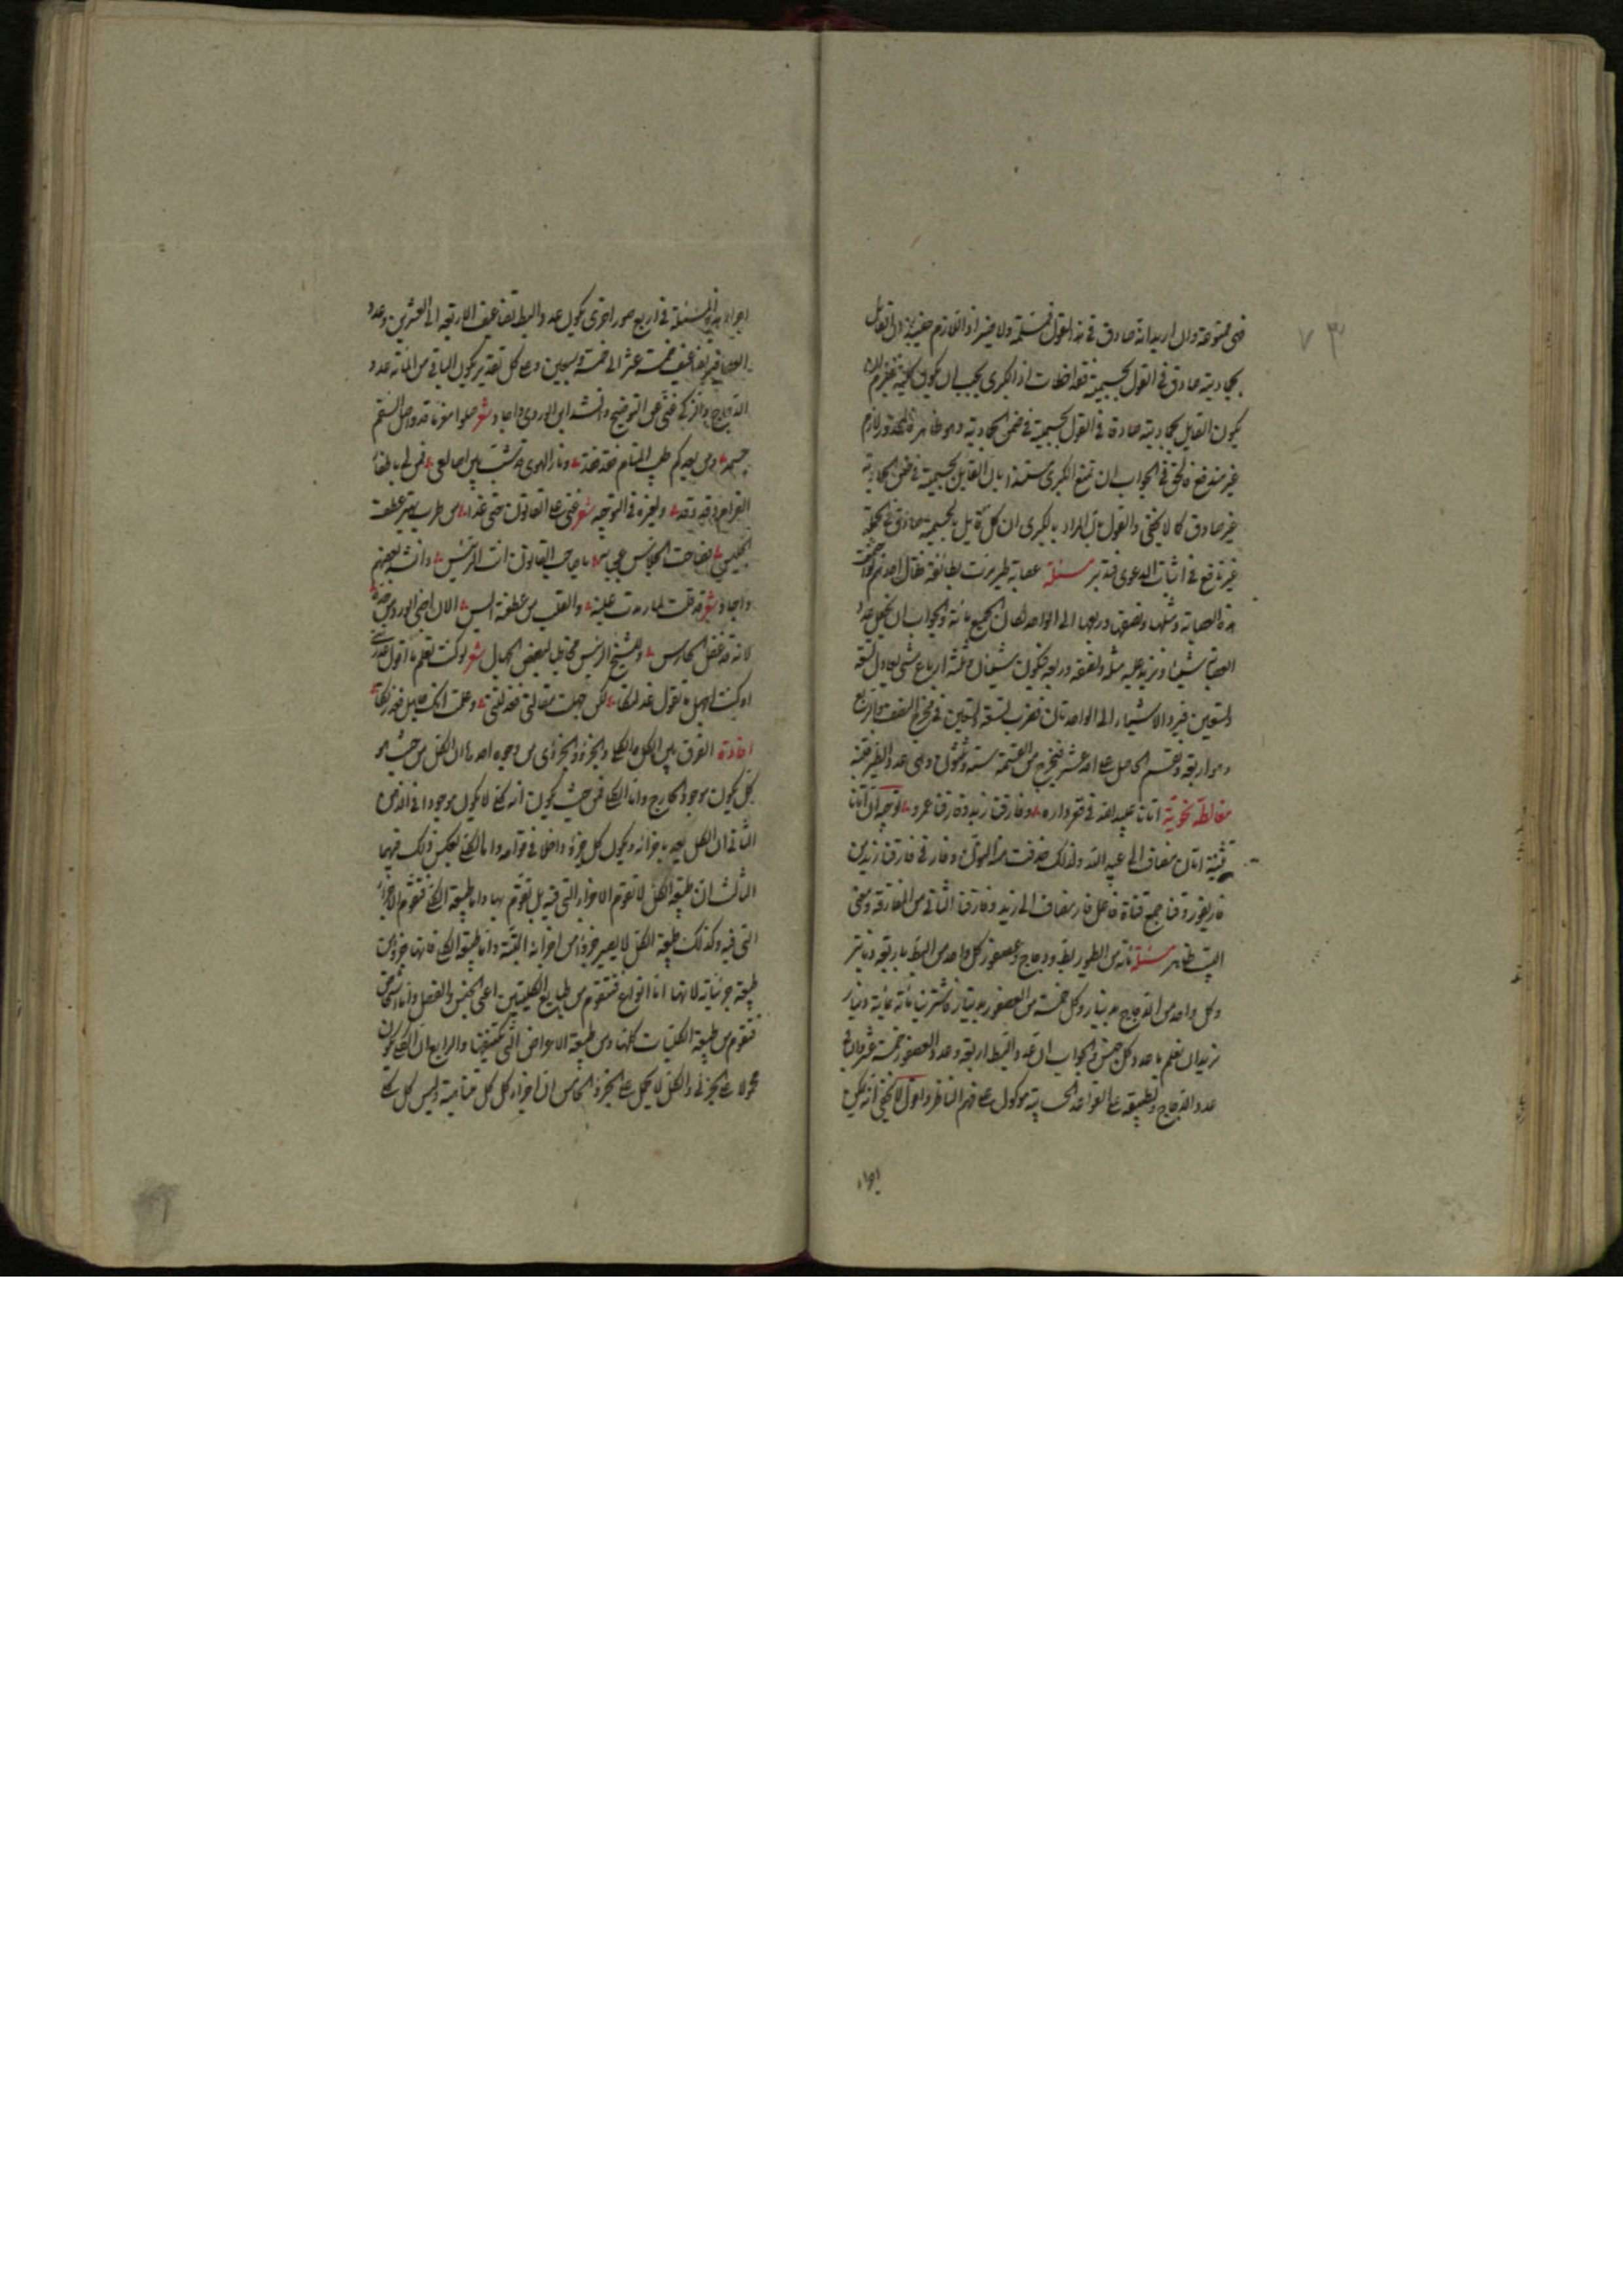 ٧٣
فهى ممنوعة وان اريد انه صادق فى هذا القول فمسلمة ولا ضير اذ اللازم حينئذ ان القايل
بجماديته صادق فى القول بجسميته فقد اخطات اذ الكبرى يجب ان يكون كلية
يكون القايل بجماديته صادقا فى القول بجسميته فى ضمن الجمادية وهو ظاهر فالمحذور لازم
غير مندفع فالحق فى الجواب ان تمنع الكبرى مستندا بان القايل بجسميته فى ضمن الجمادية
غير صادق كما لا يخفى والقول بان المراد بالكبرى ان كل قايل بجسميته صادق فى الجملة
غير نافع فى اثبات الدعوى فتدبر مسئلة عصابة طير مرت بطائفة فقال احدهم
هذه العصابة ومثلها ونصفها وربعها الى الواحد لكان الجميع مائة والجواب ان نجعل عدد
العصابة شيئا ونزيد عليه مثله ونصفه وربعه فيكون شيئان وثلثة ارباع شئ يعادل تسعة
وتسعين فنرد الاشياء الى الواحد بان نضرب التسعة والتسعين فى مخرج النصف والربع
وهو اربعة ونقسم الحاصل على احد عشر فيخرج من القسمة ستة وثلثون وهى عدد الطير
مغالطة نحوية اتانا عبد الله فى قعر داره وفارقنا زيد وفارقنا عمرو توجيه ان اتانا
تثنية اتان مضاف الى عبد الله ولذلك حذفت منه النون وفار فى فارقنا زيد من
فار يفور وقنا جمع قناة فاعل فار مضاف الى زيد وفارقنا الثانى من المفارقة ومعنى
البيت ظاهر مسئلة مائة من الطيور بط ودجاج وعصفور كل واحد من البط باربعة دنانير
وكل واحد من الدجاج بدينار وكل خمسة من العصفور بدينار فاشترينا مائة بمائة دينار
نريد ان نعلم ما عدد كل جنس والجواب ان عدد البط اربعة وعدد العصفور خمسة عشر
عدد الدجاج وتطبيقه على القواعد الحسابية موكول على فهم الناظر واقول لا يخفى انه يمكن
اجراء
اجراء هذه المسئلة فى اربع صور اخرى يكون عدد البط تضاعيف الاربعة الى العشرين وعدد
العصافير تضاعيف خمسة عشر الى خمسة وسبعين وعلى كل تقدير يكون الباقى من المائة عدد
الدجاج والزكى غنى عن التوضيح وانشد ابن الوردى واجاد شعر صلوا مغرما قد واصل السقم
جسمه ومن بعدكم طيب المنام فقد فقد ونار الهوى قد شبت بين اضالعى فمن لى باطفاء
الغرام وقد وقد ولغيره فى التوجيه شعر غنى على القانون حتى غدا من طرب يهتز عطف
الجليس فصاحت الجلاس عجبا به يا صاحب القانون انت الرئيس وانشد بعضهم
واجاد شعر قد قلت لما مرت عليه والقلب من عطفه آيس الآن اجنى الورد من خده
لانه قد غفل الحارس وللشيخ الرئيس مخاطبا لبعض الجهال شعر لو كنت تعلم ما اقول عذرتنى
او كنت اجهل ما تقول عذلتكا لكن جهلت مقالتى فعذلتنى وعلمت انك جاهل فعذرتكا
افادة الفرق بين الكل والكلى والجزء والجزئى من وجوه احدها ان الكل من حيث هو
كل يكون موجودا فى الخارج واما الكلى فمن حيث يكون انه كلى لا يكون موجودا الا فى الذهن
الثانى ان الكل يعد باجزائه ويكون كل جزء داخلا فى قوامه واما الكلى بعكس ذلك فيهما
الثالث ان طبيعة الكل لا تقوم الاجزاء التى فيه بل تقوم بها واما طبيعة الكلى فتقوم الاجزاء
التى فيه وكذلك طبيعة الكل لا يصير جزء من اجزائه البتة واما طبيعة الكلى فانها جزء من
طبيعة جزئياته لانها اما انواع فتتقوم من طبايع الكليتين اعنى الجنس والفصل واما اشخاص
فتقوم من طبيعة الكليات كلها ومن طبيعة الاعراض التى تكتنفها والرابع ان الكلى يكون
محمولا على الجزئى والكل لا يحمل على الجزء الخامس ان اجزاء كل كل متناهية وليس كل كلى